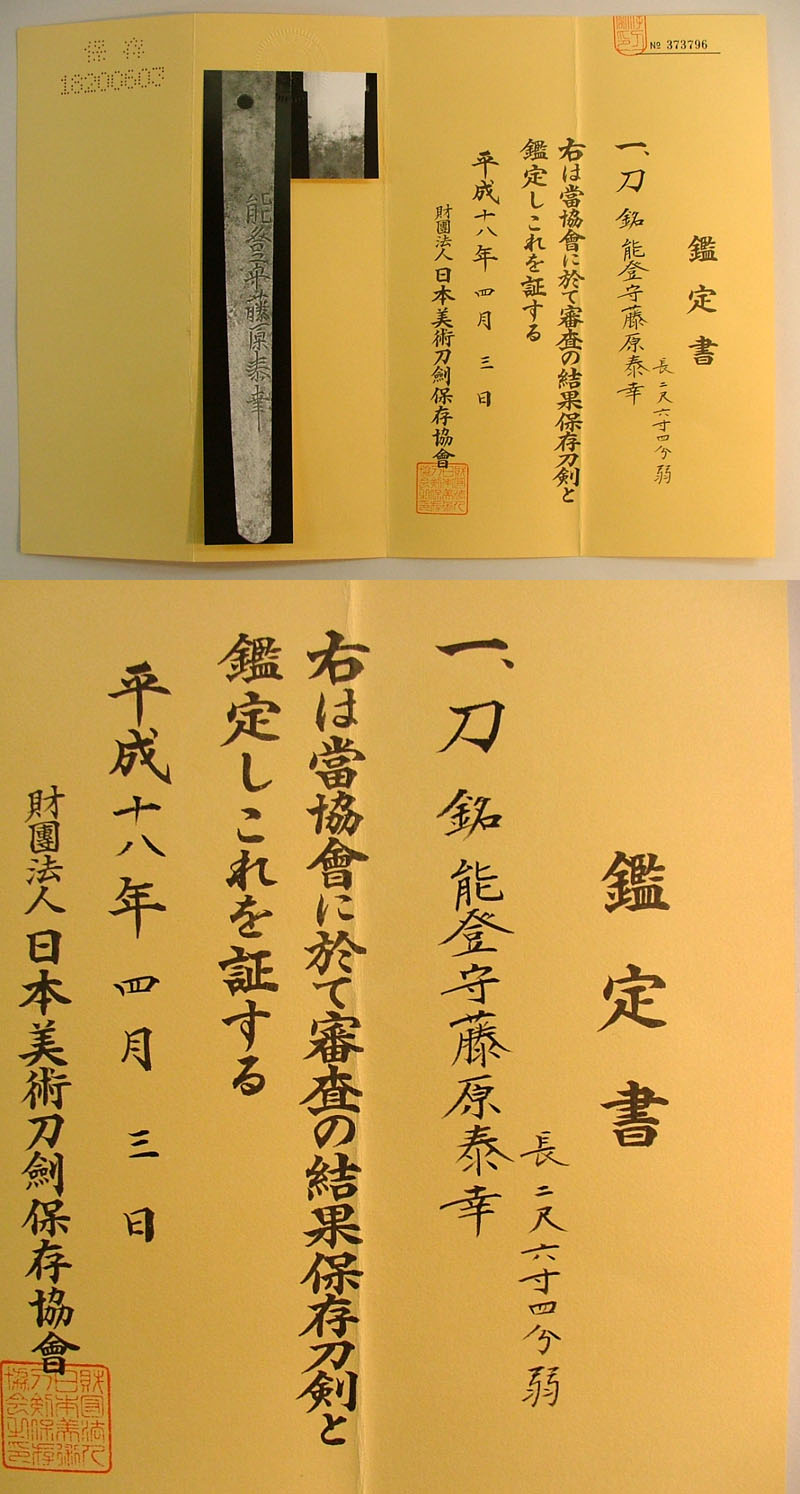 保存
18200603
№ 373796
鑑定書
一、刀 銘 能登守藤原泰幸
長二尺六寸四分弱
右は當協會に於て審査の結果保存刀剣と
鑑定しこれを証する
平成十八年 四月 三日
財團法人 日本美術刀劍保存協會
能登守藤原泰幸
鑑定書
一、刀 銘 能登守藤原泰幸
長二尺六寸四分弱
右は當協會に於て審査の結果保存刀剣と
鑑定しこれを証する
平成十八年 四月 三日
財團法人 日本美術刀劍保存協會